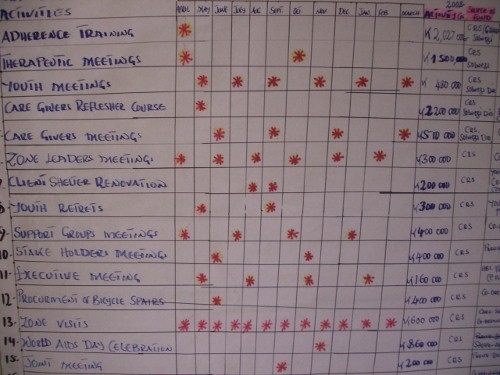 ACTIVITIES APRIL MAY JUNE JULY AUG SEPT OCT NOV DEC JAN FEB MARCH 2008
ADHERENCE TRAINING CRS
THERAPEUTIC MEETINGS CRS
YOUTH MEETINGS 450 000 CRS
CARE GIVERS REFLESHER COURSE CRS
CARE GIVERS MEETINGS K510 000 CRS
ZONE LEADERS MEETINGS K300 000 CRS
CLIENT SHELTER RENOVATION K200 000 CRS
YOUTH RETRETS K300 000 CRS
9- SUPPORT GROUPS MEETINGS K400 000 CRS
10- STAKE HOLDERS MEETINGS K400 000 CRS
11- EXECUTIVE MEETING K160 000 CRS
12- PROCURMENT OF BICYCLE SPAIRS K400 000 CRS
13- ZONE VISITS K600 000 CRS
14- WORLD AIDS DAY CELEBRATION K860 000 CRS
15- JOINT MEETING K200 000 CRS